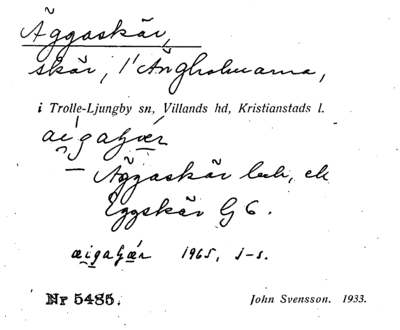 Äggaskär,
skär, i Ängholmarna,
i Trolle-Ljungby sn, Villands hd, Kristianstads l.
Äggaskär
Eggskär G6.
1965, j-s.
Nr 5485.
John Svensson. 1933.